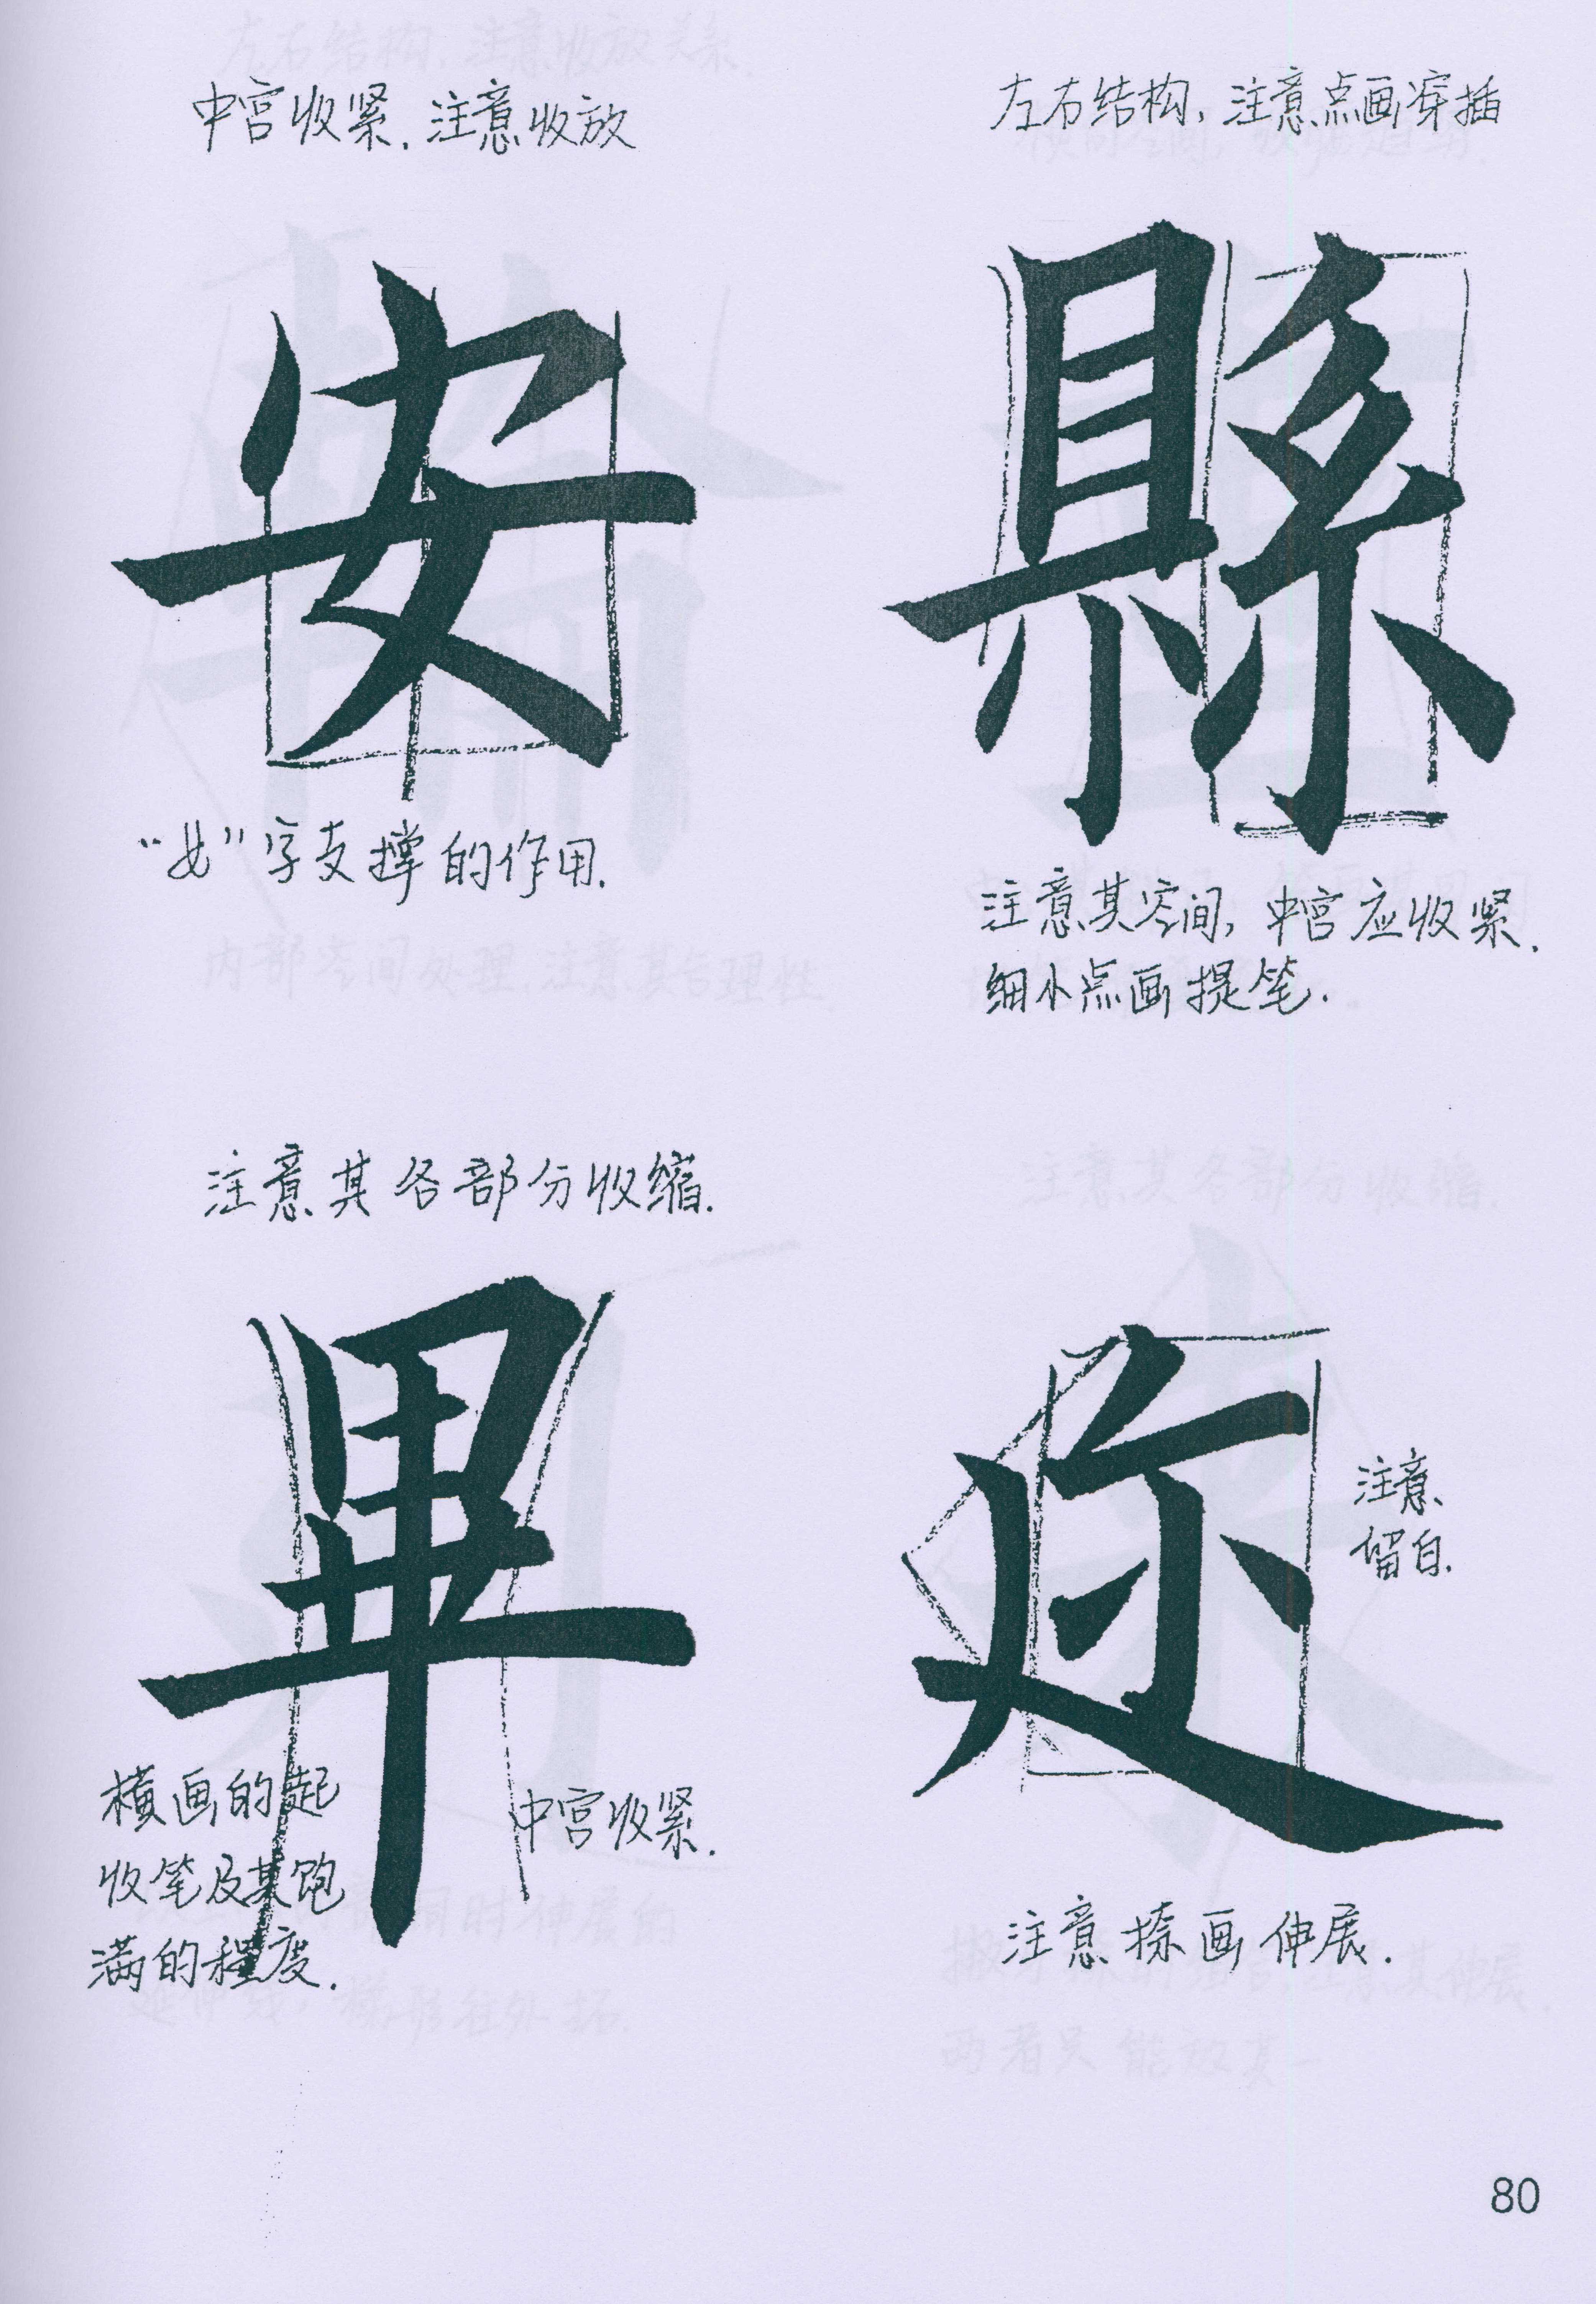 中宫收紧.注意收放
安
"女"字支撑的作用.
左右结构,注意点画穿插
縣
注意其空间,中宫应收紧.
细小点画提笔.
注意其各部分收缩.
畢
横画的起
收笔及其饱
满的程度.
中宫收紧.
迩
注意
留白.
注意捺画伸展.
80